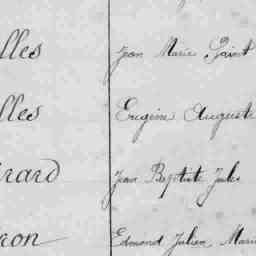 lles Jean Marie Saint
lles Eugène Auguste
rard Jean Baptiste Jules
ron Edmond Julien Marie